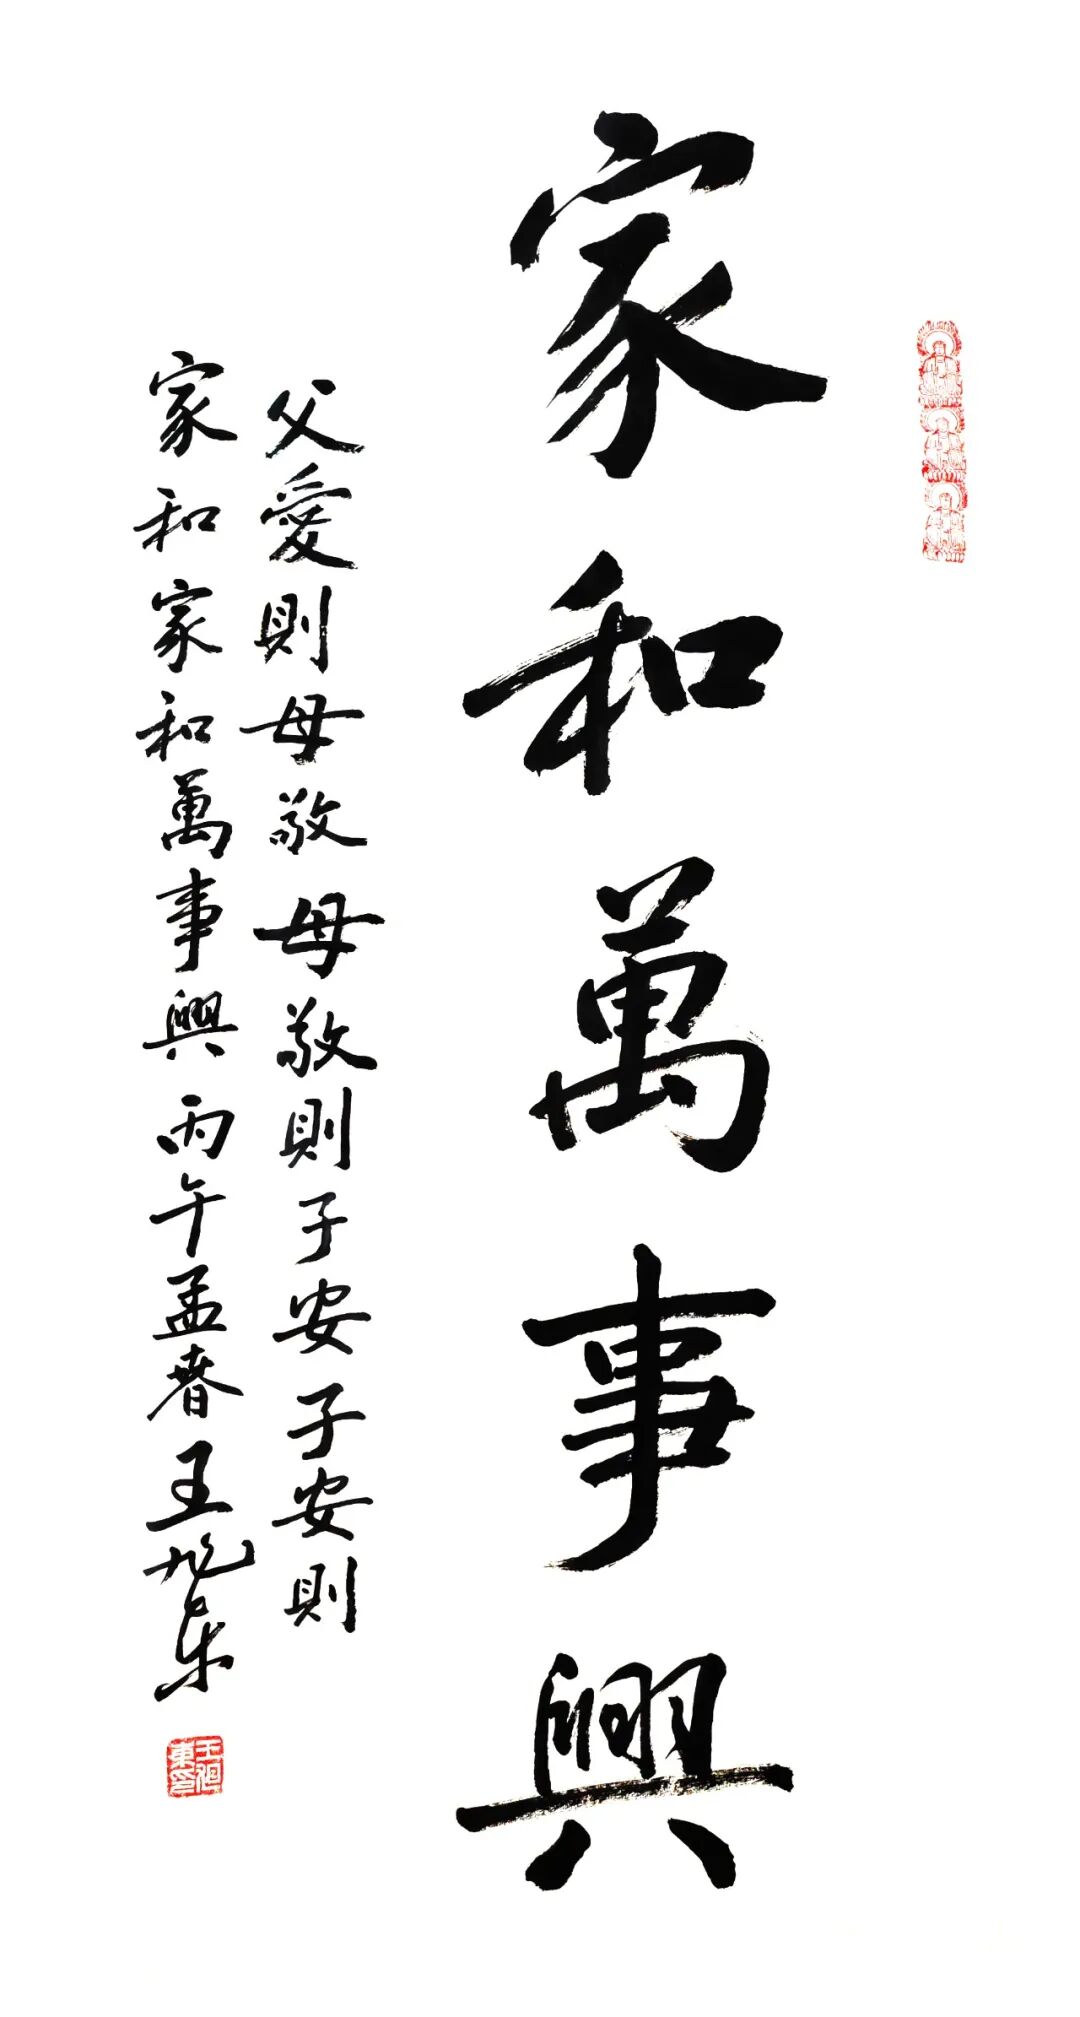 家和萬事興
父愛則母敬母敬則子安子安則
家和家和萬事興丙午孟春王旭東
王旭東印